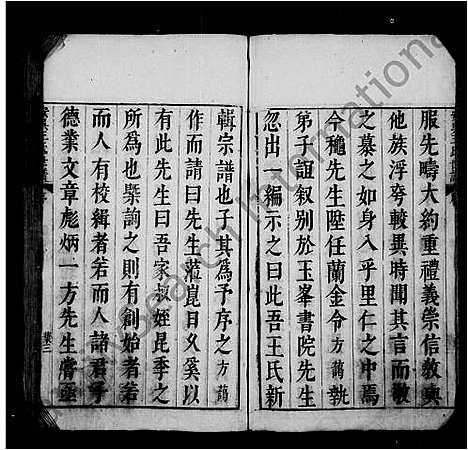 服先疇大約重禮義崇信教與
他族浮夸較異時聞其言而敬
之慕之如身入乎里仁之中焉
今穐先生陞任蘭金令方藹執
弟子誼叙别於玉峯書院先生
忽出一編示之曰此吾王氏新
輯宗譜也子其為予序之方藹
作而請曰先生蒞崑日久奚以
有此先生曰吾家叔姪昆季之
所為也槩詢之則有創始者若
而人有校緝者若而人諸君子
德業文章彪炳一方先生嘗亟